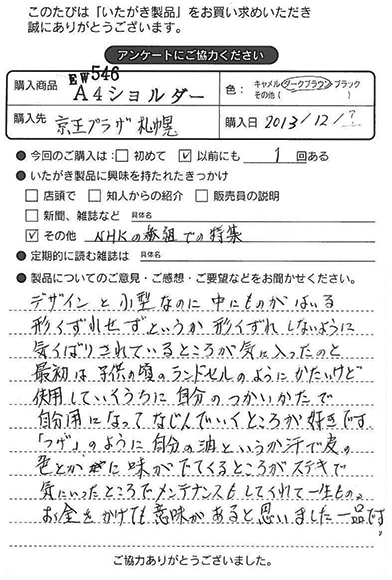 このたびは「いたがき製品」をお買い求めいただき
誠にありがとうございます。
アンケートにご協力ください
購入商品 EW546 A4ショルダー 色： キャメル ダークブラウン ブラック
その他（ ）
購入先 京王プラザ札幌 購入日 2013/12/?
● 今回のご購入は： □ 初めて ☑ 以前にも 1 回ある
● いたがき製品に興味を持たれたきっかけ
□ 店頭で □ 知人からの紹介 □ 販売員の説明
□ 新聞、雑誌など 具体名
☑ その他 NHKの番組での特集
● 定期的に読む雑誌は 具体名
● 製品についてのご意見・ご感想・ご要望などをお聞かせください。
デザインと小型なのに中にものがはいる
形くずれせずというか形くずれしないように
気くばりされているところが気に入ったのと
最初は子供の頃のランドセルのようにかたいけど
使用していくうちに自分のつかいかたで
自分用になってなじんでいくところが好きです
「つげ」のように自分の油というか汗で皮の
色とかに味がでてくるところがステキで
気にいったところでメンテナンスもしてくれて一生もの。
お金をかけても意味があると思いました一品です
ご協力ありがとうございました。